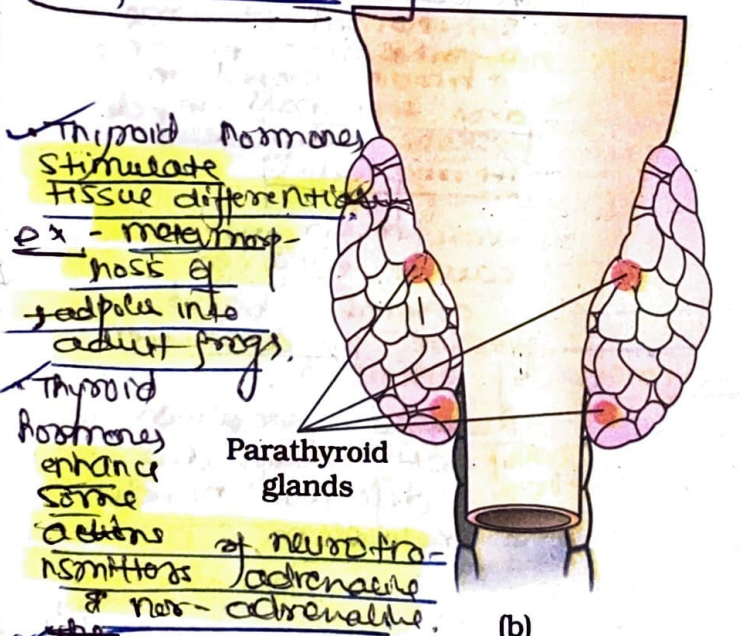 Thyroid hormones
stimulate
tissue differentia
ex - metamorp-
hosis of
tadpoles into
adult frogs.
Thyroid
hormones
enhance
some
actions of neurotra-
nsmitters adrenaline
& nor-adrenaline.
Parathyroid
glands
(b)